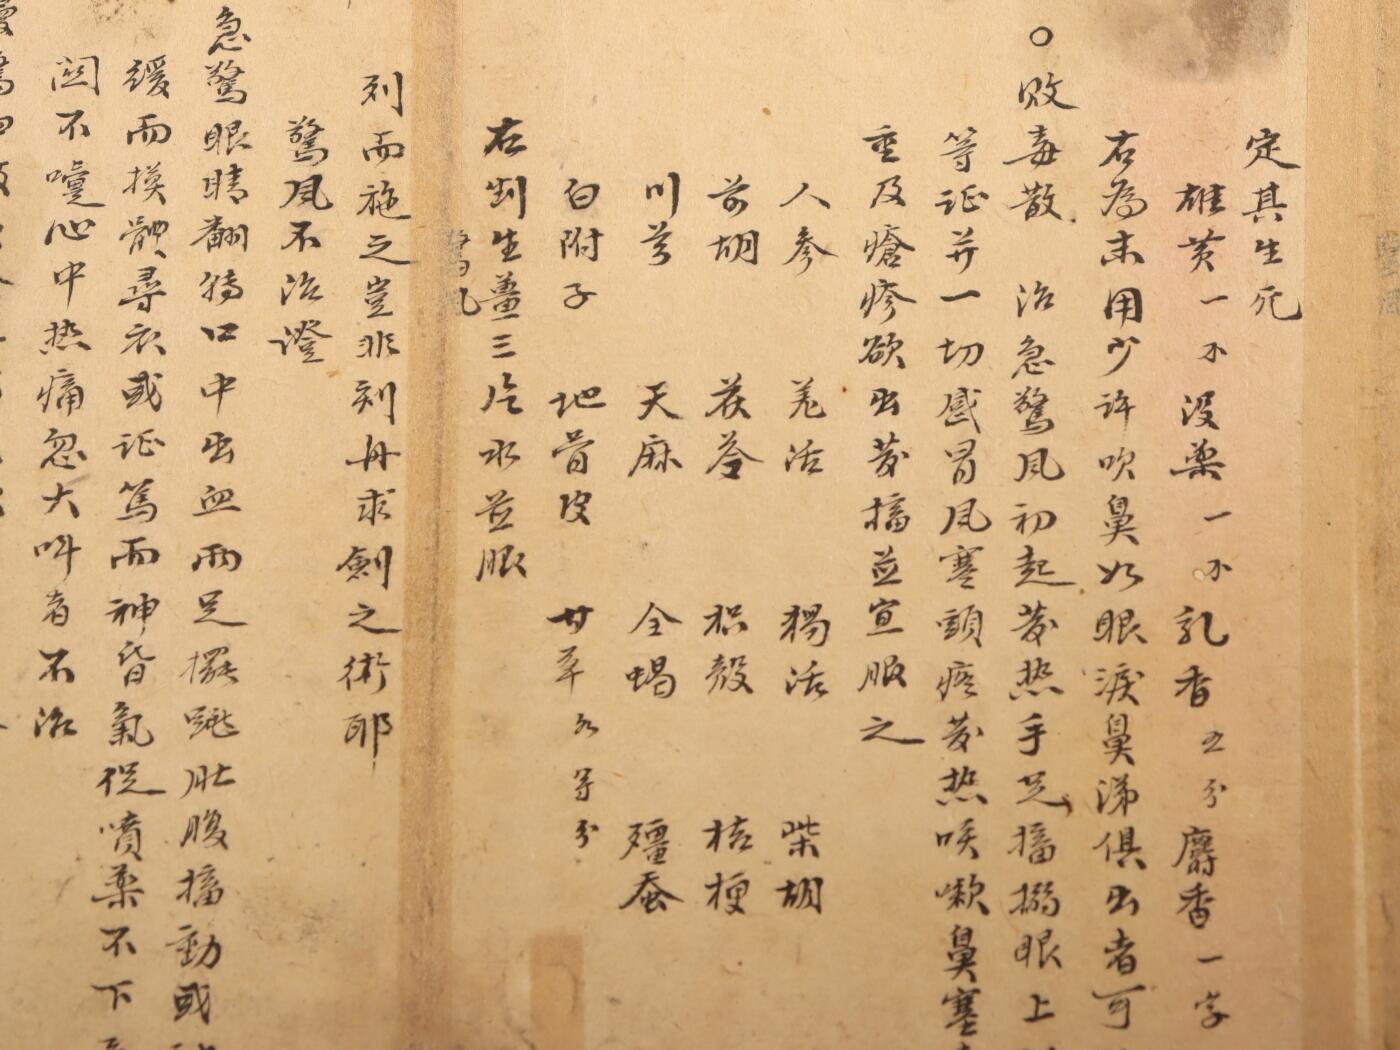 定其生死
雄黄一不没藥一不乳香五分麝香一字
右為末用少許吹鼻如眼淚鼻涕俱出者可
○敗毒散 治急驚風初起發热手足搐搦眼上
等证并一切感冒風寒頭疼發热咳嗽鼻塞
重及瘡疹欲出發搐並宣服之
人參 羗活 獨活 柴胡
前胡 茯苓 枳殼 桔梗
川芎 天麻 全蝎 殭蚕
白附子 地骨皮 甘草各等分
右剉生薑三片水煎服
驚風
列而施之豈非刻舟求劍之術耶
驚風不治證
急驚眼睛翻轉口中出血兩足擺跳肚腹搐動或
緩而摸體尋衣或证篤而神昏氣促噴藥不下
関不嚏心中热痛忽大呌者不治